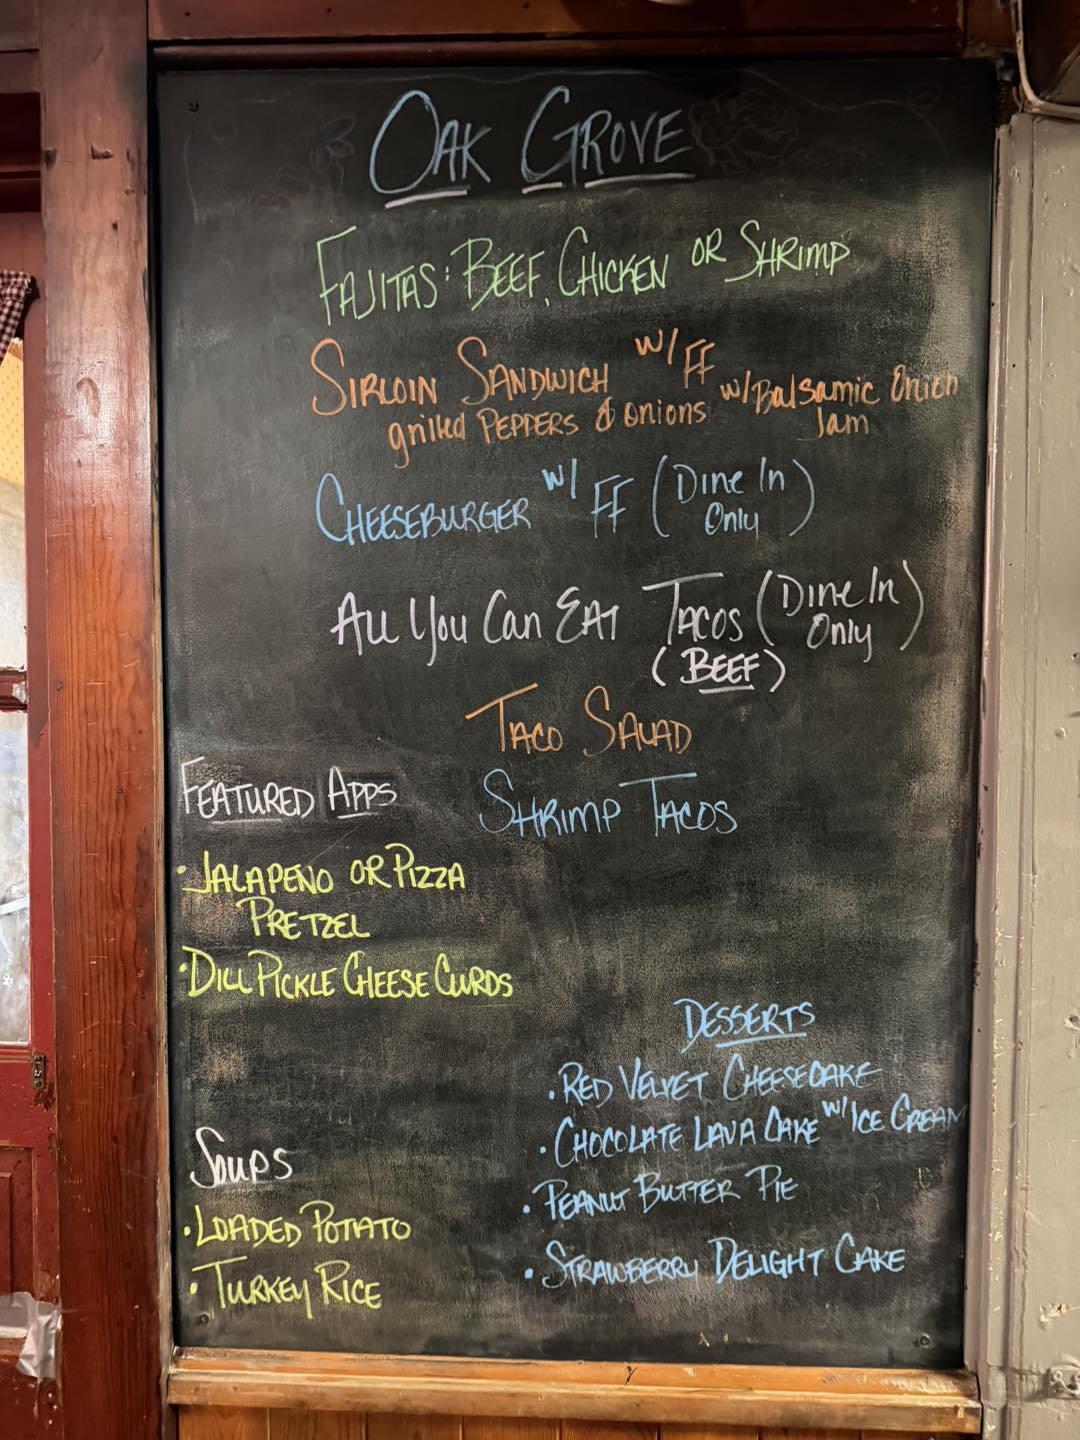 OAK GROVE
FAJITAS: BEEF, CHICKEN OR SHRIMP
SIRLOIN SANDWICH W/ FF
grilled PEPPERS & onions w/ Balsamic Onion
Jam
CHEESEBURGER W/ FF (Dine In
Only)
All You Can EAT TACOS (Dine In
Only)
(BEEF)
TACO SALAD
FEATURED APPS
SHRIMP TACOS
• JALAPENO OR PIZZA
PRETZEL
• DILL PICKLE CHEESE CURDS
DESSERTS
• RED VELVET CHEESECAKE
• CHOCOLATE LAVA CAKE W/ ICE CREAM
• PEANUT BUTTER PIE
• STRAWBERRY DELIGHT CAKE
SOUPS
• LOADED POTATO
• TURKEY RICE